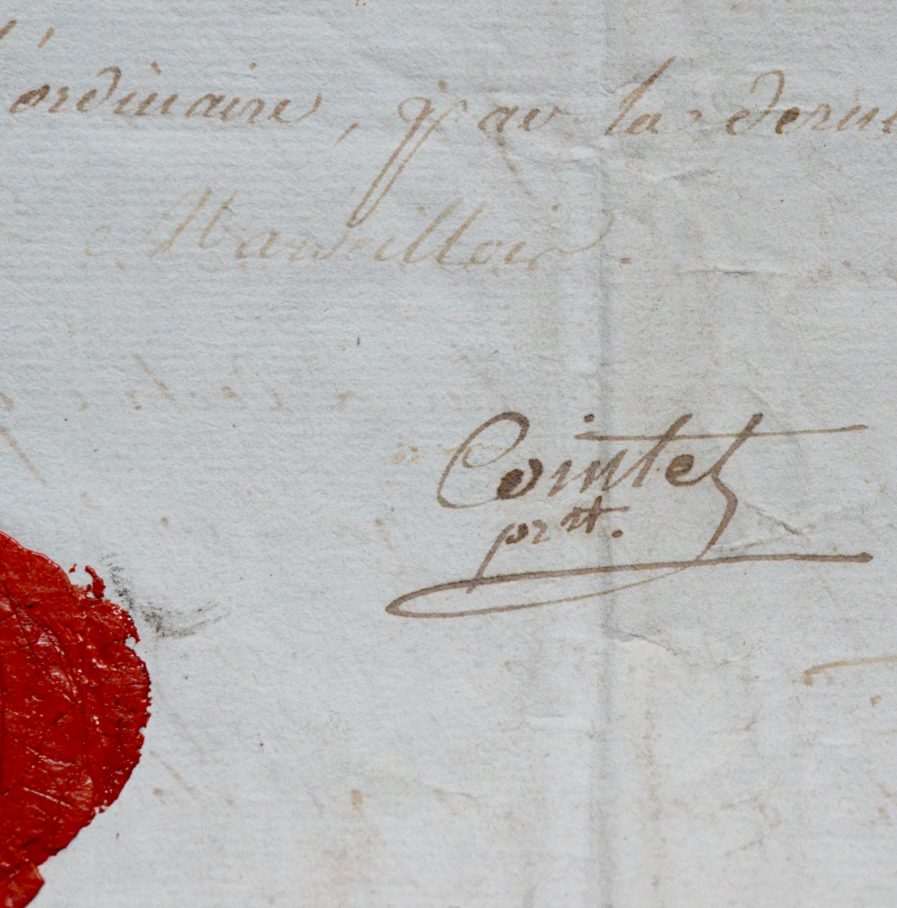 l'ordinaire, par la derni
Marseillois.
Cointet
prdt.